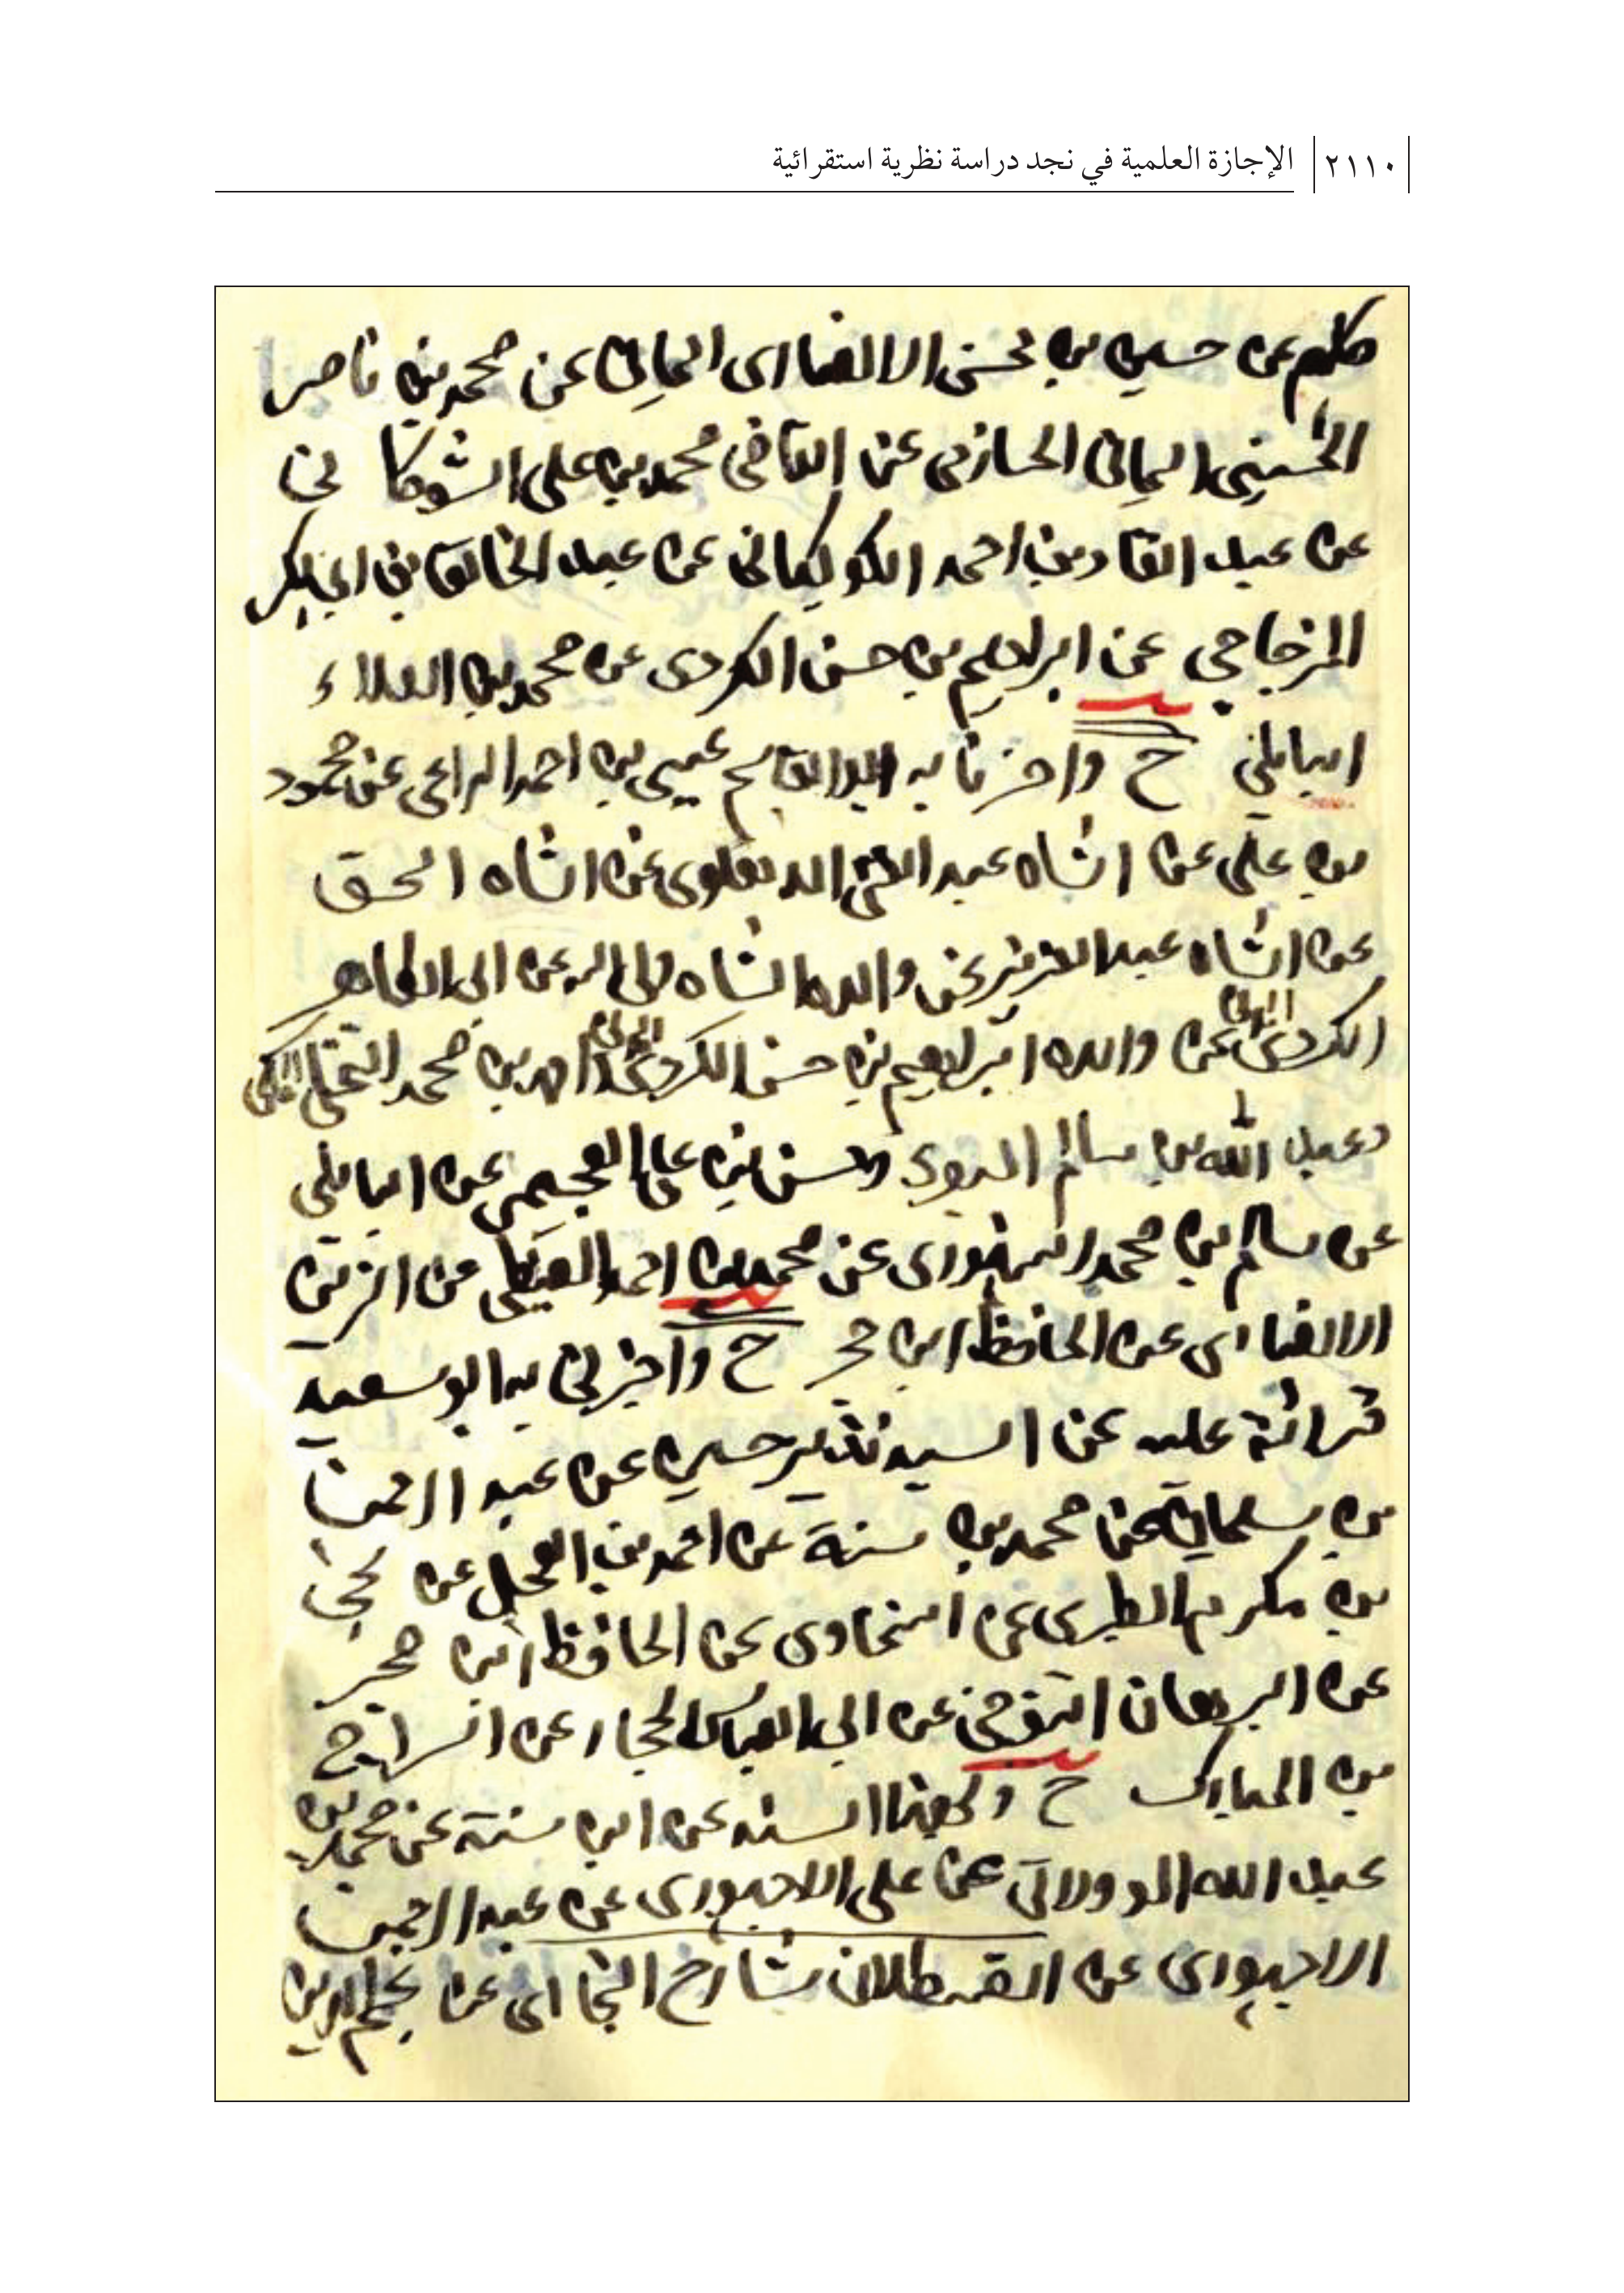 ٢١١٠ الإجازة العلمية في نجد دراسة نظرية استقرائية
كلهم عن حسين بن محسن الانصارى اليماني عن محمد بن ناصر
الحسيني اليماني الحازمي عن القاضي محمد بن علي الشوكا ني
عن عبد القادر بن احمد الكوكباني عن عبد الخالق بن ابي بكر
المزجاجي عن ابراهيم بن حسن الكردى عن محمد بن العلاء
البابلي ح واخبرنا به ابو القاسم عيسى بن احمد الراعى عن محمود
بن علي عن الشاه عبد الغني الدهلوى عن الشاه اسحق
عن الشاه عبد العزيز عن والده الشاه ولي الله عن ابي الطاهر
الكردى عن والده ابراهيم بن حسن الكردى احمد بن محمد النخلي المكي
وعبد الله بن سالم البصرى وحسن بن علي العجيمي عن البابلي
عن سالم بن محمد السنهورى عن محمد بن احمد الغيطي عن الزين
الانصارى عن الحافظ ابن حجر ح واخبرني به ابو سعيد
قرائة عليه عن السيد نذير حسين عن عبد الرحمن
بن سليمان عن محمد بن سنة عن احمد بن العجل عن يحيى
بن مكرم الطبرى عن السخاوى عن الحافظ ابن حجر
عن البرهان التنوخي عن ابي العباس الحجار عن السراج
بن المبارك ح وبهذا السند عن ابن سنة عن محمد بن
عبد الله الوولاتي عن علي الاجهورى عن عبد الرحمن
الاجهورى عن القسطلان شارح البخارى عن نجم الدين